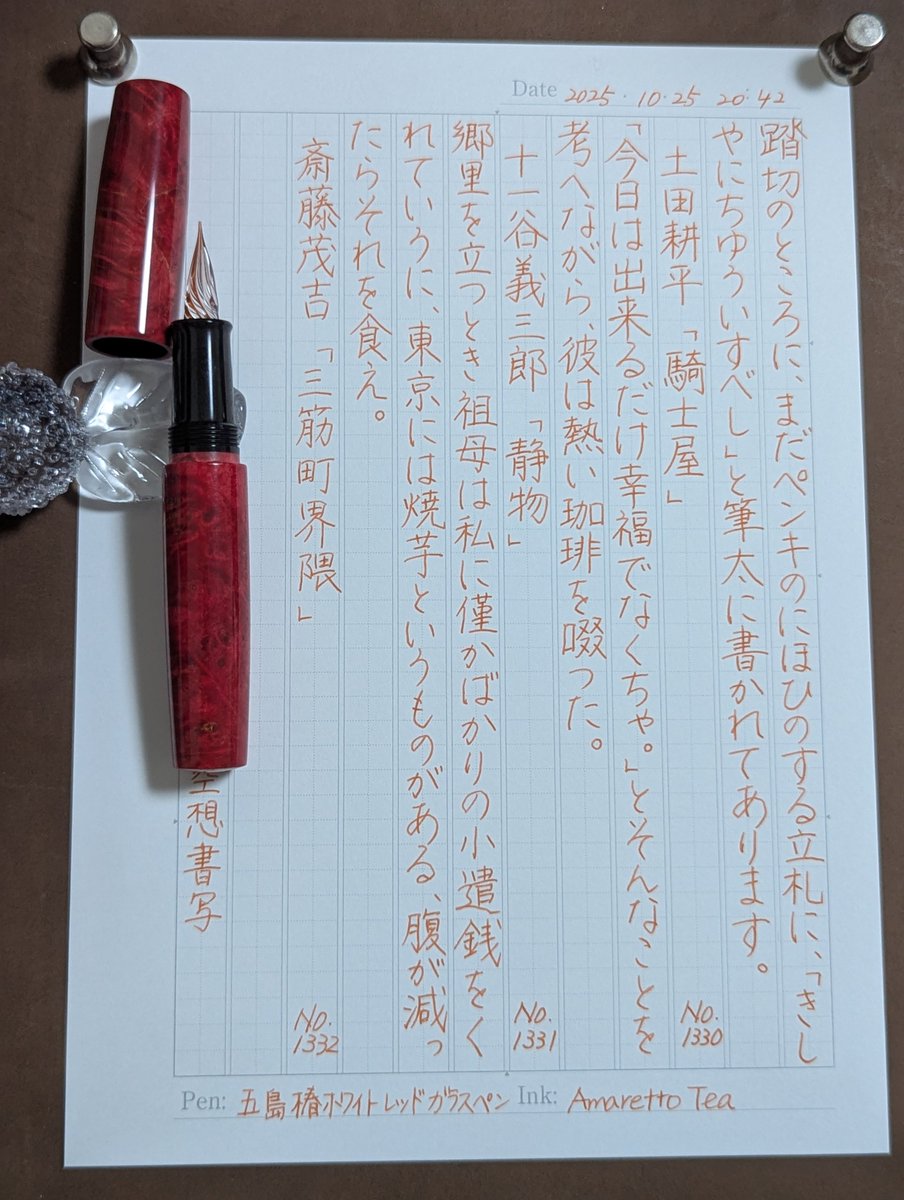 Date 2025.10.25 20:42
踏切のところに、まだペンキのにほひのする立札に、「きし
やにちゆういすべし」と筆太に書かれてあります。
土田耕平「騎士屋」 No.1330
「今日は出来るだけ幸福でなくちゃ。」とそんなことを
考へながら、彼は熱い珈琲を啜つた。
十一谷義三郎「静物」 No.1331
郷里を立つとき祖母は私に僅かばかりの小遣銭をく
れていうに、東京には焼芋というものがある、腹が減っ
たらそれを食え。
斎藤茂吉「三筋町界隈」 No.1332
空想書写
Pen: 五島椿ホワイトレッドガラスペン Ink: Amaretto Tea